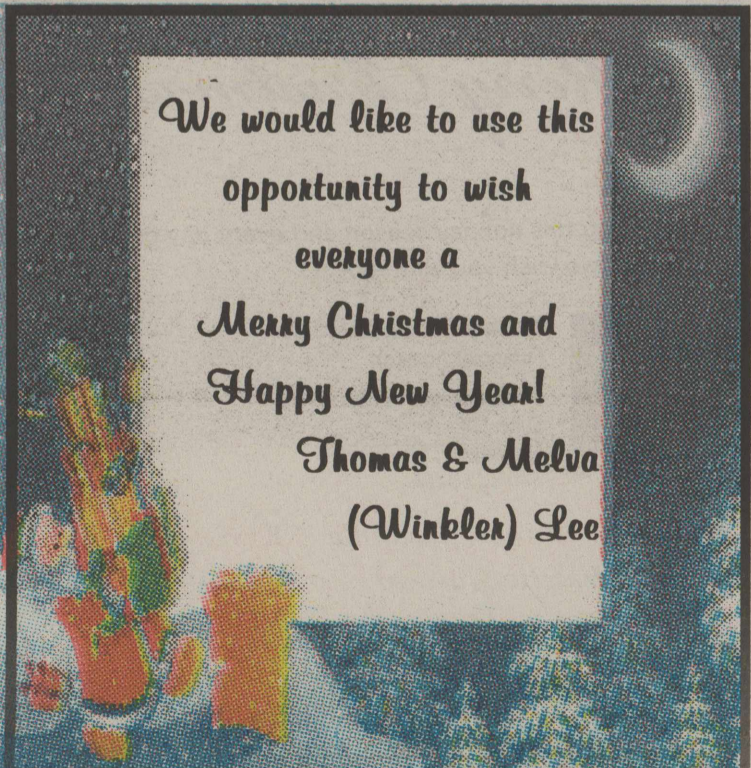 We would like to use this
opportunity to wish
everyone a
Merry Christmas and
Happy New Year!
Thomas & Melva
(Winkler) Lee